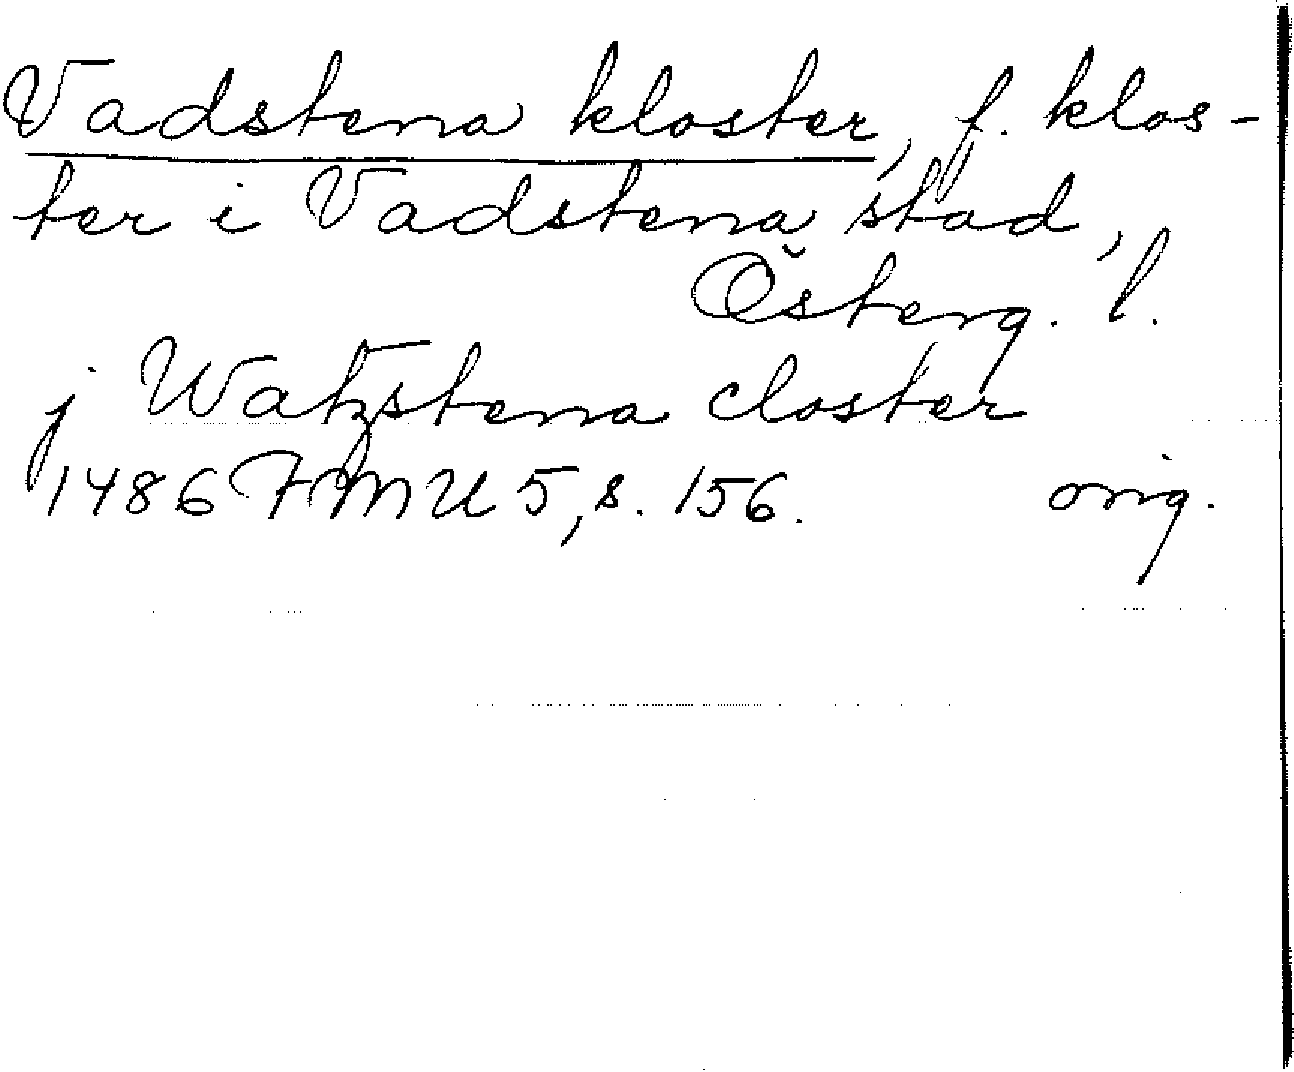 Vadstena kloster, f. klos-
ter i Vadstena stad,
Österg. l.
j Watzstena closter
1486 FMU 5, s. 156. orig.